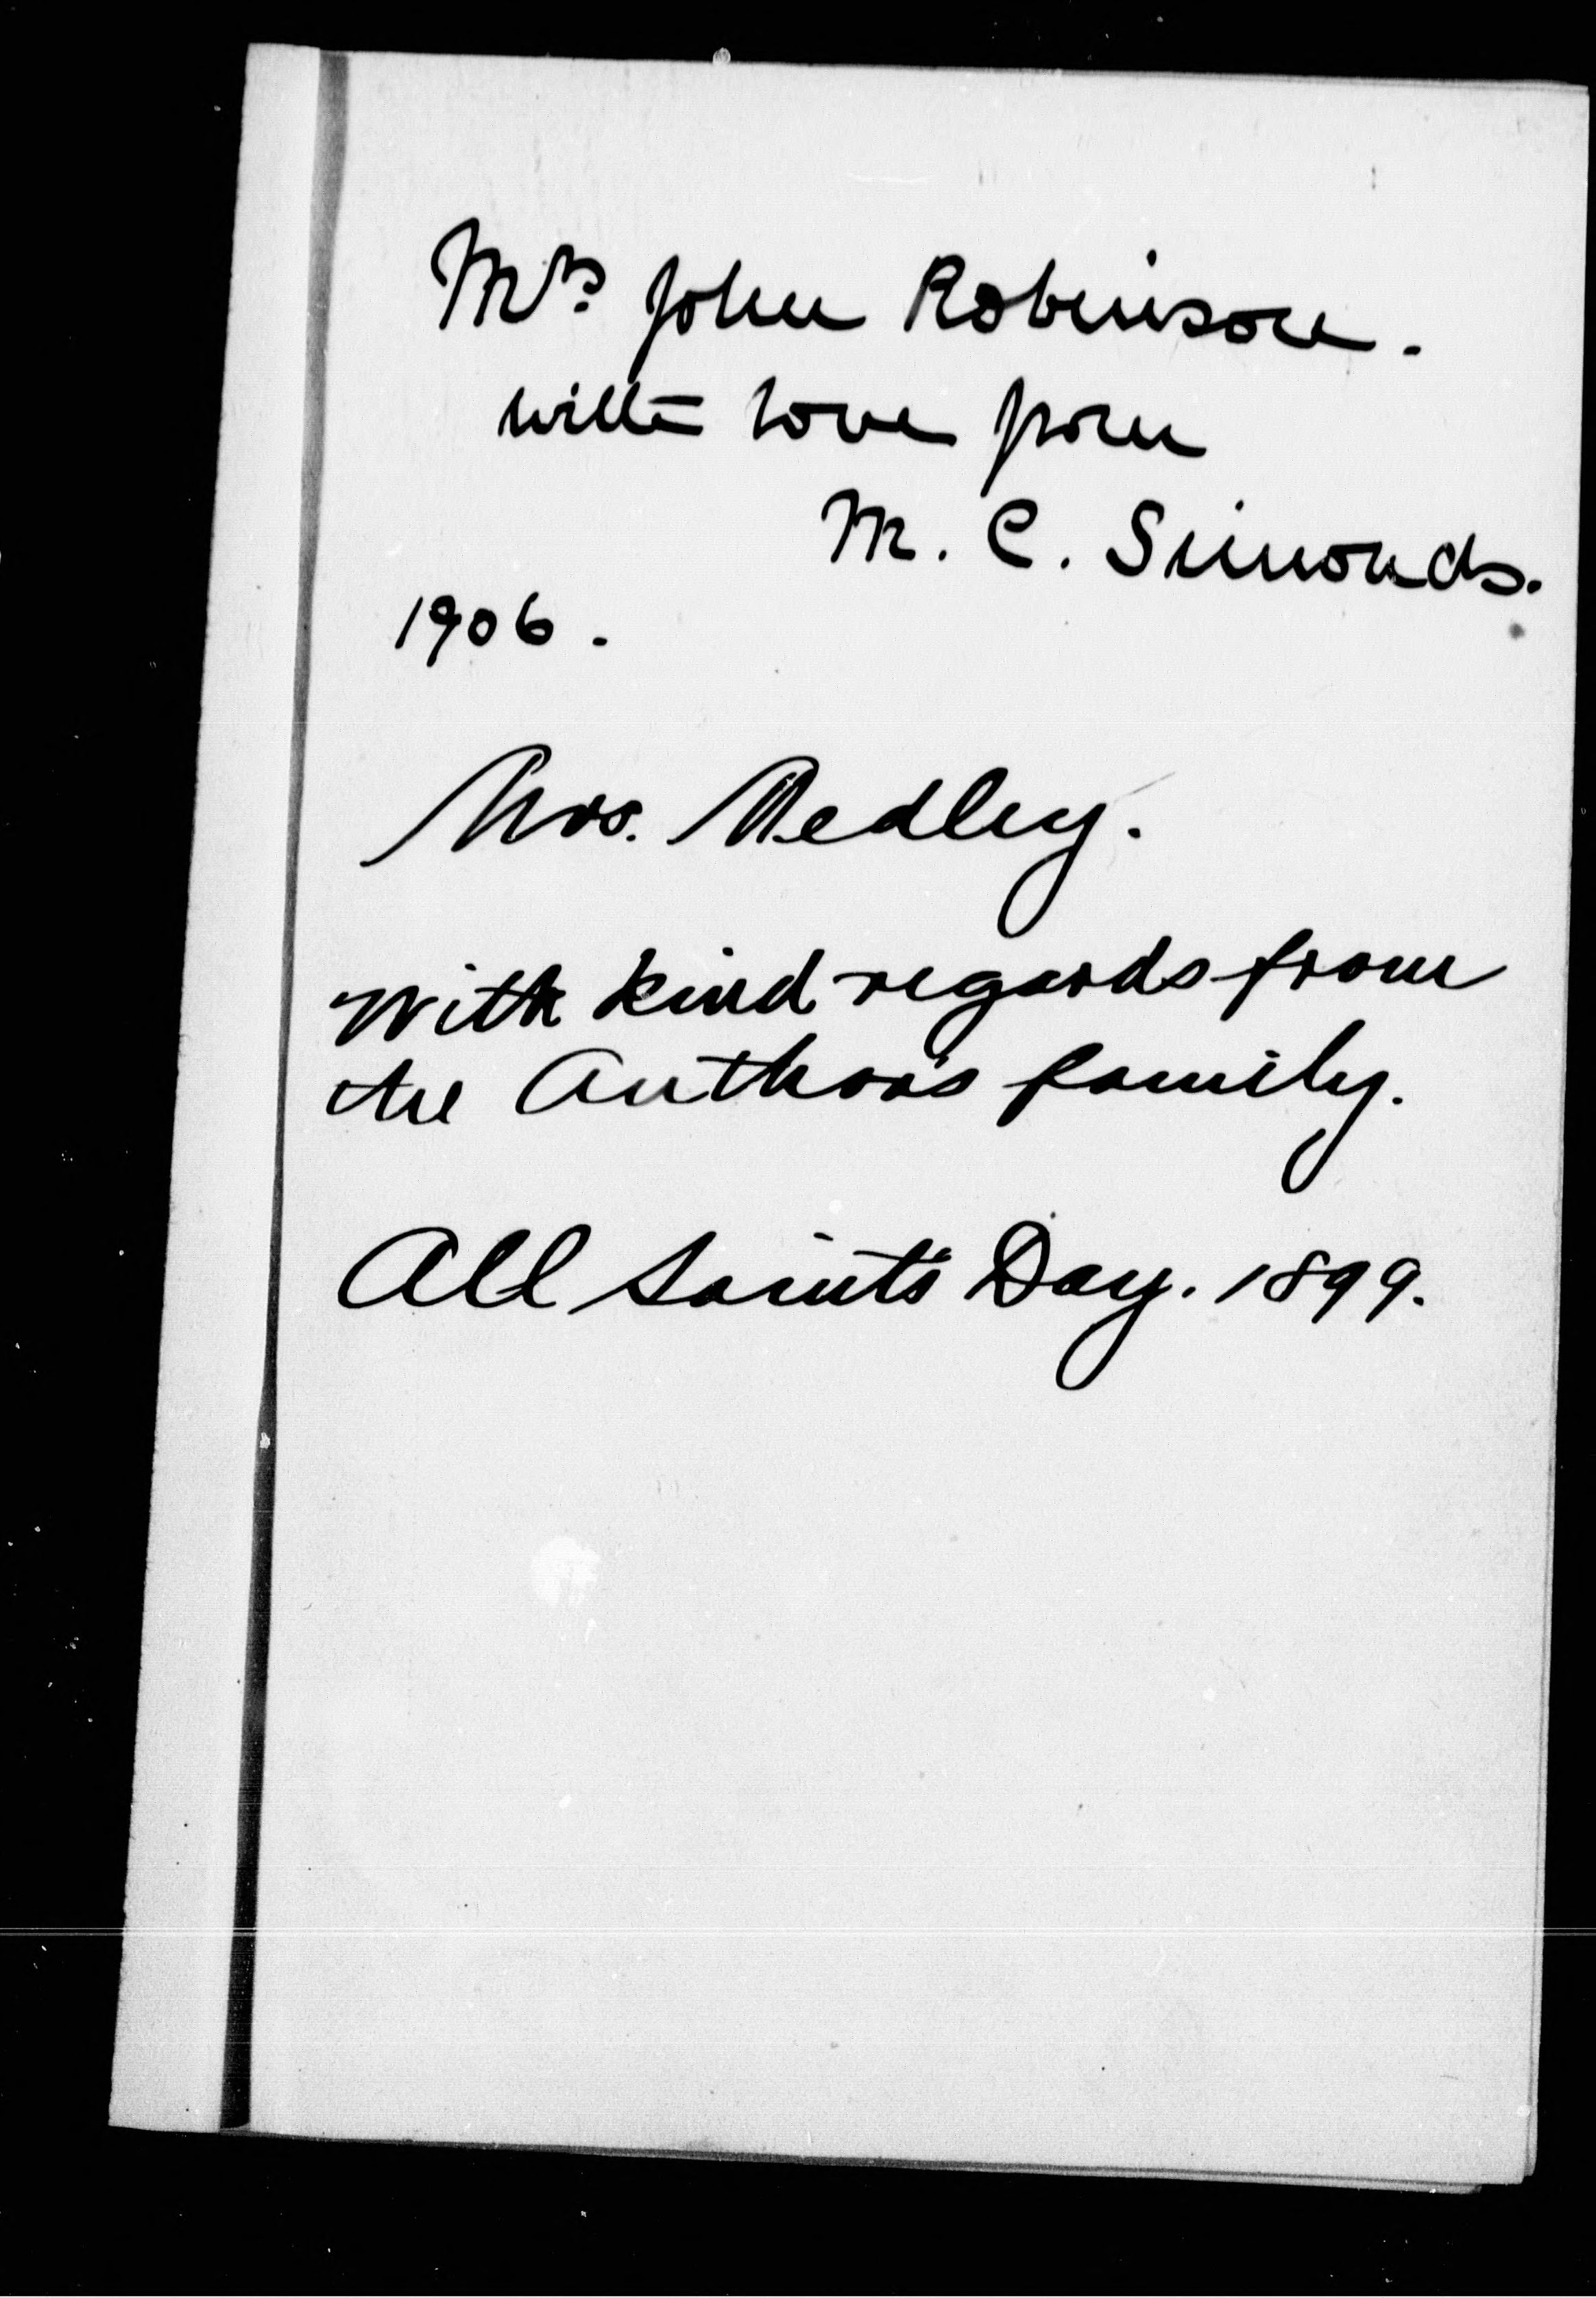 Mrs. John Robinson.
with love from
M. C. Simonds.
1906.
Mrs. Medley.
With kind regards from
the Author's family.
All Saint's Day. 1899.